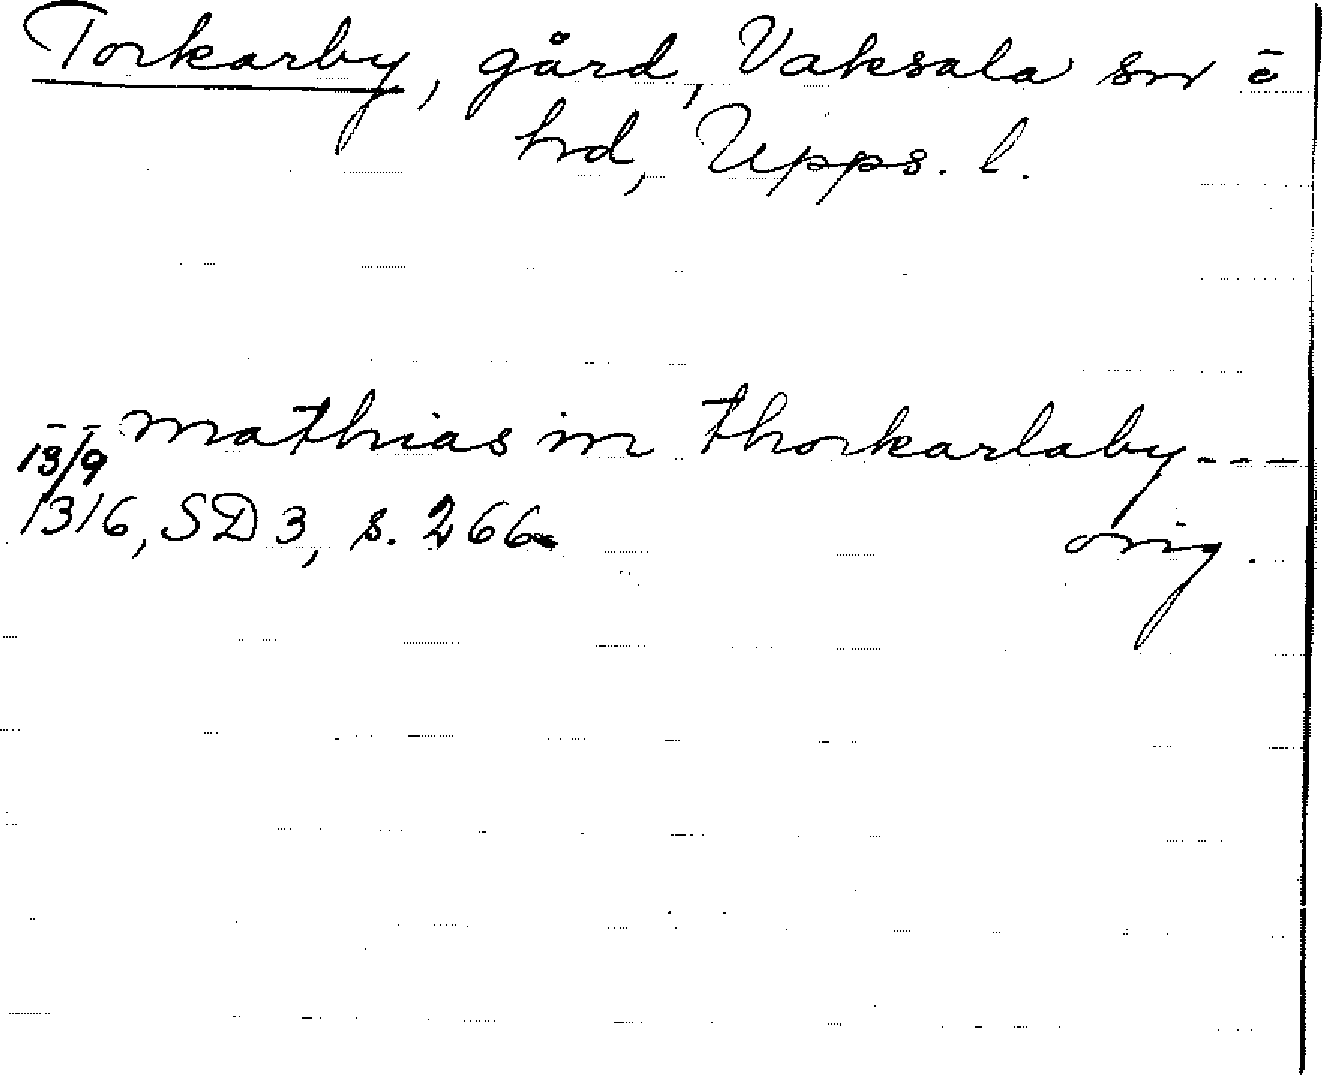 Torkarby, gård, Vaksala sn o
hrd, Upps. l.
-- mathias in thorkarlaby ---
13/9
1316, SD 3, s. 266. orig.